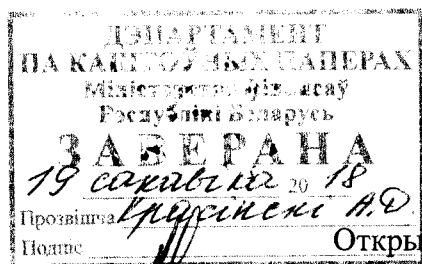 ДЭПАРТАМЕНТ
ПА КАШТОЎНЫХ ПАПЕРАХ
Міністэрства фінансаў
Рэспублікі Беларусь
ЗАВЕРАНА
19 сакавіка 20 18
Прозвішча Красінскі А.О.
Подпіс
Откры